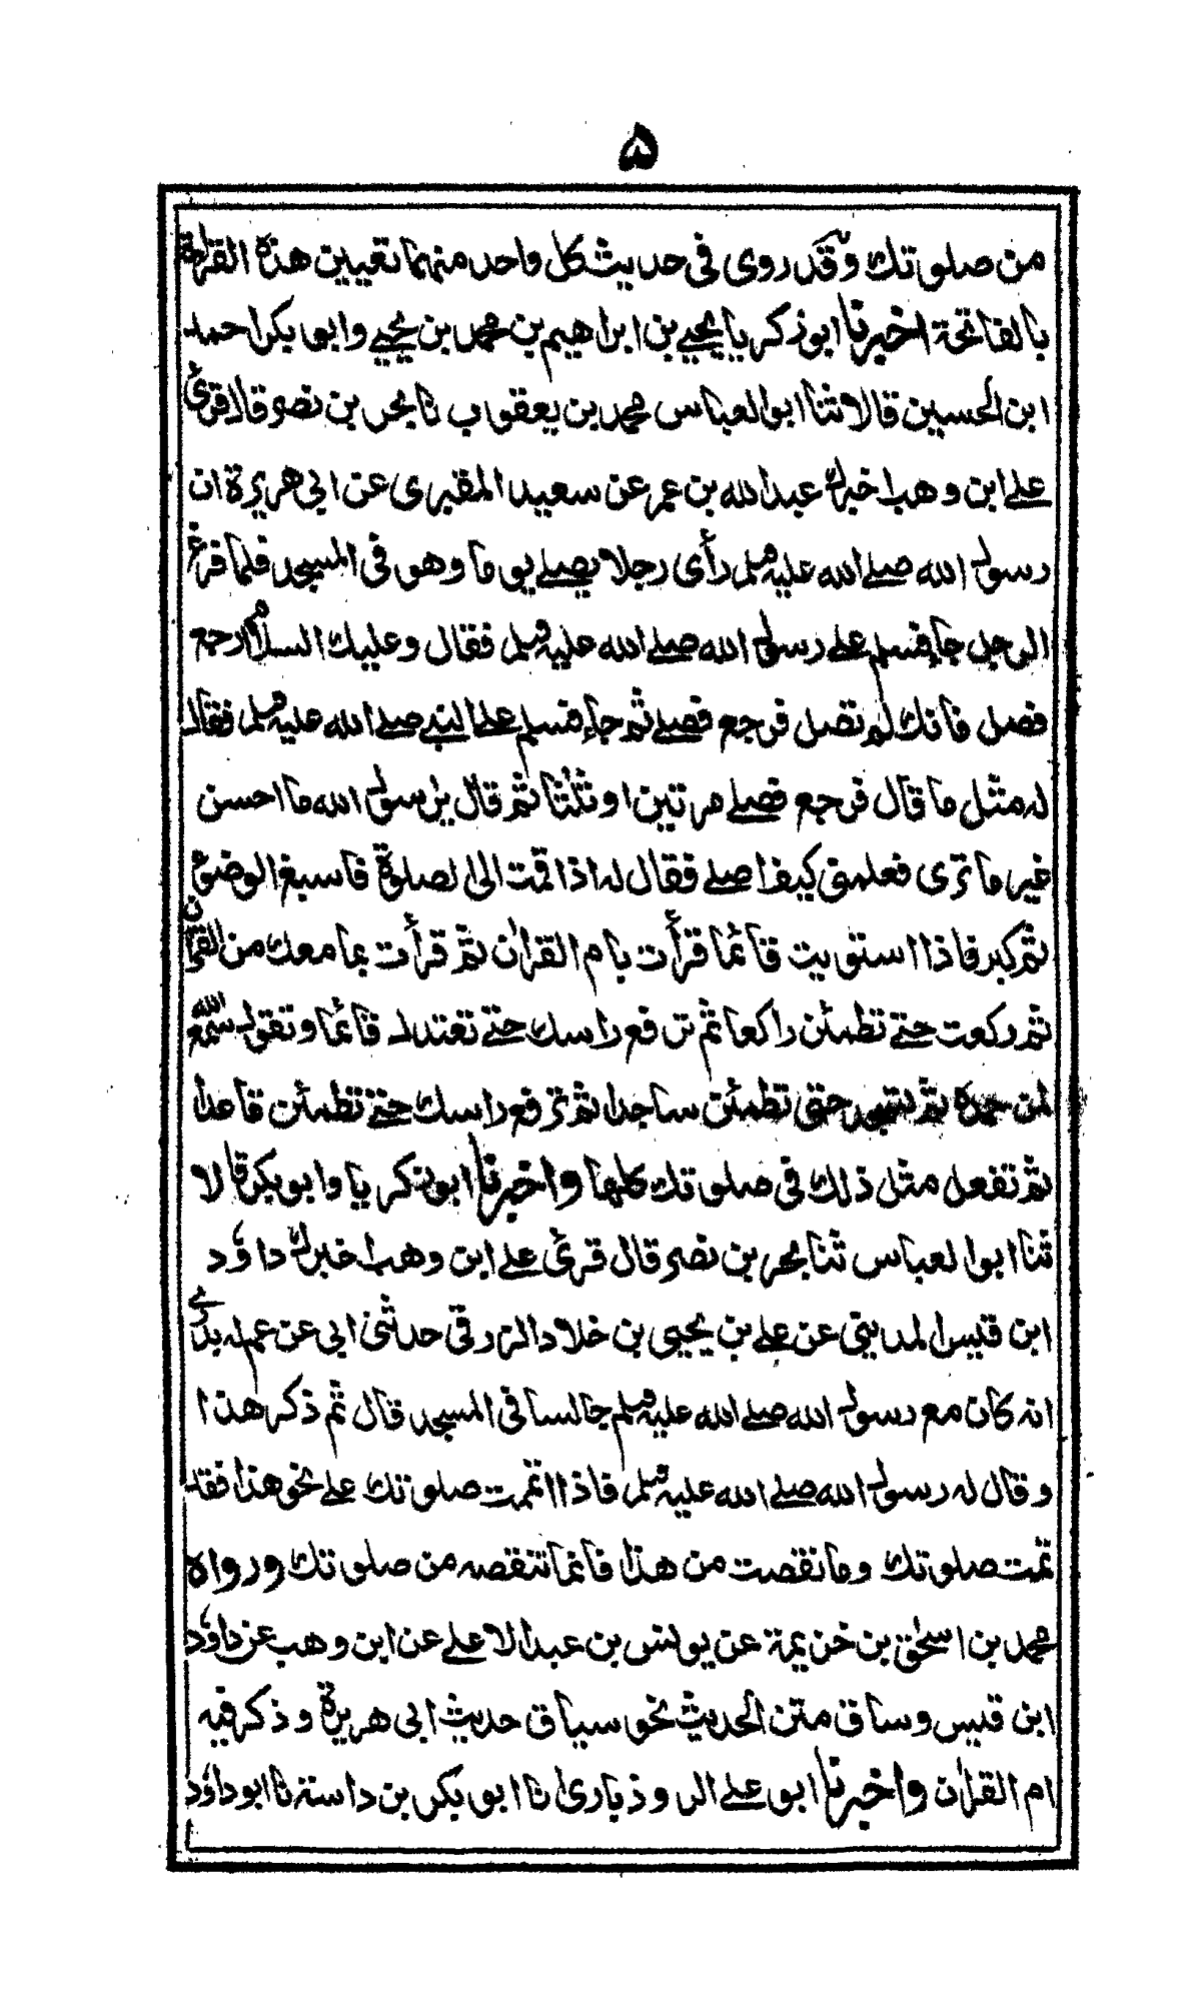 ۵
من صلوتك وقد روى فى حديث كل واحد منهما تعيين هذه القراءة
بالفاتحة اخبرنا ابو زكريا يحيى بن ابراهيم بن محمد بن يحيى وابو بكر احمد
ابن الحسين قالا ثنا ابو العباس محمد بن يعقوب نا بحر بن نصر قال قرئ
على ابن وهب اخبرك عبد الله بن عمر عن سعيد المقبرى عن ابى هريرة ان
رسول الله صلى الله عليه وسلم رأى رجلا يصلى يوما وهو فى المسجد فلما فرغ
الرجل جاء فسلم على رسول الله صلى الله عليه وسلم فقال وعليك السلام ارجع
فصل فانك لم تصل فرجع فصلى ثم جاء فسلم على النبى صلى الله عليه وسلم فقال
له مثل ما قال فرجع فصلى مرتين او ثلثا ثم قال يرسول الله ما احسن
غير ما ترى فعلمنى كيف اصلى فقال له اذا قمت الى الصلوة فاسبغ الوضوء
ثم كبر فاذا استويت قائما قرأت بام القران ثم قرأت بما معك من القران
ثم ركعت حتى تطمئن راكعا ثم ترفع راسك حتى تعتدل قائما وتقول سمع الله
لمن حمده ثم تسجد حتى تطمئن ساجدا ثم ترفع راسك حتى تطمئن قاعدا
ثم تفعل مثل ذلك فى صلوتك كلها واخبرنا ابو زكريا وابو بكر قالا
ثنا ابو العباس ثنا بحر بن نصر قال قرئ على ابن وهب اخبرك داؤد
ابن قيس المدينى عن على بن يحيى بن خلاد الزرقى حدثنى ابى عن عم له بدرى
انه كان مع رسول الله صلى الله عليه وسلم جالسا فى المسجد قال ثم ذكر هذا
وقال له رسول الله صلى الله عليه وسلم فاذا اتممت صلوتك على نحو هذا فقد
تمت صلوتك وما نقصت من هذا فانما تنقصه من صلوتك ورواه
محمد بن اسحٰق بن خزيمة عن يونس بن عبد الاعلى عن ابن وهب عن داؤد
ابن قيس وساق متن الحديث نحو سياق حديث ابى هريرة وذكر فيه
ام القران واخبرنا ابو على الروذبارى نا ابو بكر بن داسته نا ابو داؤد